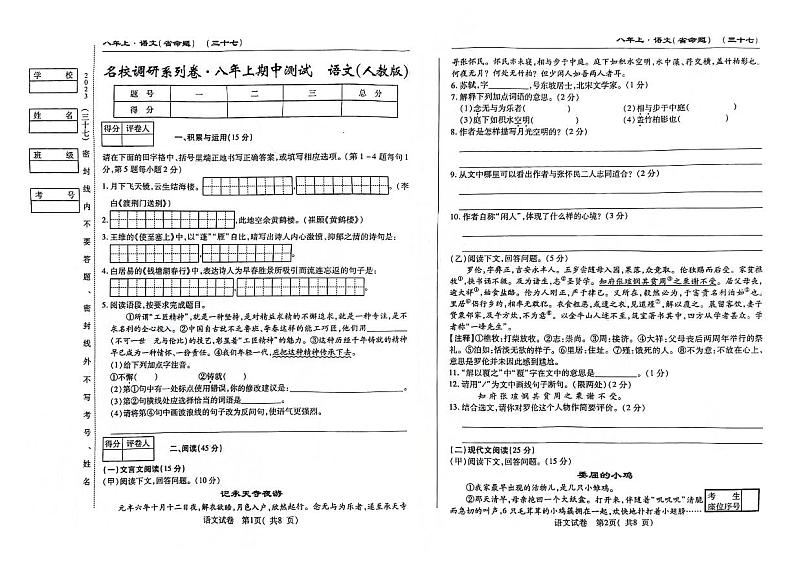 八年上·语文(省命题) (三十七)
名校调研系列卷·八年上期中测试 语文(人教版)
题 号 一 二 三 总 分
得 分
学 校
姓 名
班 级
考 号
2023(三十七)密封线内不要答题、密封线外不写考号、姓名
得分 评卷人
一、积累与运用(15分)
请在下面的田字格中、括号里端正地书写正确答案,或填写相应选项。(第1-4题每句1
分,第5题每小题2分)
1.月下飞天镜,云生结海楼。 。(李
白《渡荆门送别》)
2. ,此地空余黄鹤楼。(崔颢《黄鹤楼》)
3.王维的《使至塞上》中,以“蓬”“雁”自比,暗写出诗人内心激愤、抑郁之情的诗句是:
, 。
4.白居易的《钱塘湖春行》中,表达诗人为早春胜景所吸引而流连忘返的句子是:
, 。
5.阅读语段,按要求完成题目。
①所谓“工匠精神”,就是一种坚持,是对精益求精的不懈追求,就是一种专注,是不
求名利的全心投入。②中国自古就不乏鲁班、李春这样的能工巧匠,他们用
(不可一世 无与伦比)的技艺,彰显着“工匠精神”的魅力。③这种历经千年铸就的精神
早已成为一种情怀、一份责任。④我们年轻一代,应把这种精神传承下去。
(1)给下列加点字注音。
①不懈( ) ②铸就( )
(2)第①句中有一处标点使用错误,你的修改建议是: 。
(3)第②句横线处应选择恰当的词语是 。
(4)请将第④句中画波浪线的句子改为反问句,使语气更强烈。
得分 评卷人
二、阅读(45分)
(一)文言文阅读(15分)
(甲)阅读下文,回答问题。(10分)
记承天寺夜游
元丰六年十月十二日夜,解衣欲睡,月色入户,欣然起行。念无与为乐者,遂至承天寺
语文试卷 第1页(共8页)
八年上·语文(省命题) (三十七)
寻张怀民。怀民亦未寝,相与步于中庭。庭下如积水空明,水中藻、荇交横,盖竹柏影也。
何夜无月?何处无竹柏?但少闲人如吾两人者耳。
6.苏轼,字 ,号东坡居士,北宋文学家。(1分)
7.解释下列加点词语的意思。(2分)
(1)念无与为乐者( ) (2)相与步于中庭( )
(3)庭下如积水空明( ) (4)盖竹柏影也( )
8.作者是怎样描写月光空明的?(2分)
9.从文中哪里可以看出作者与张怀民二人志同道合?(2分)
10.作者自称“闲人”,体现了什么样的心境?(3分)
(乙)阅读下文,回答问题。(5分)
罗伦,字彝正,吉安永丰人。五岁尝随母入园,果落,众竞取。伦独赐而后受。家贫樵
牧①,挟书诵不辍。及为诸生,志②圣贤学。知府张瑄悯其贫周③之粟谢不受。居父母丧,
逾大祥④,始食盐酪。伦为人刚正,严于律已。义所在,毅然必为,于富贵名利泊如⑤也。
里居⑥倡行乡约,相率无敢犯。衣食粗恶,或遗之衣,见道殣⑦,解以覆之。晨留客饮,妻子
贷粟邻家,及午方炊,不为意⑧。以金牛山人迹不至,筑室著书其中,四方从学者甚众。学
者称“一峰先生”。
【注释】①樵牧:打柴放牧。②志:崇尚。③周:接济。④大祥:父母丧后两周年举行的祭
礼。⑤泊如:恬淡无欲的样子。⑥里居:住址。⑦殣:饿死的人。⑧不为意:不放在心上,
意思是罗伦并未因此感到尴尬。
11.“解以覆之”中“覆”字在文中的意思是 。(1分)
12.请用“/”为文中画线句子断句。(限两处)(2分)
知府张瑄悯其贫周之粟谢不受。
13.结合选文,请你对罗伦这个人物作简要评价。(2分)
(二)现代文阅读(25分)
(甲)阅读下文,回答问题。(15分)
委屈的小鸡
①我家最早出现的活物儿,是几只小雏鸡。
②那天清早,母亲挽回一个大纸盒。打开来,伴随着“叽叽叽”清脆
而急切的叫声,6只毛茸茸的小鸡蹒拥在一起,欢快地扑打着小翅膀……
考 生
座位序号
语文试卷 第2页(共8页)